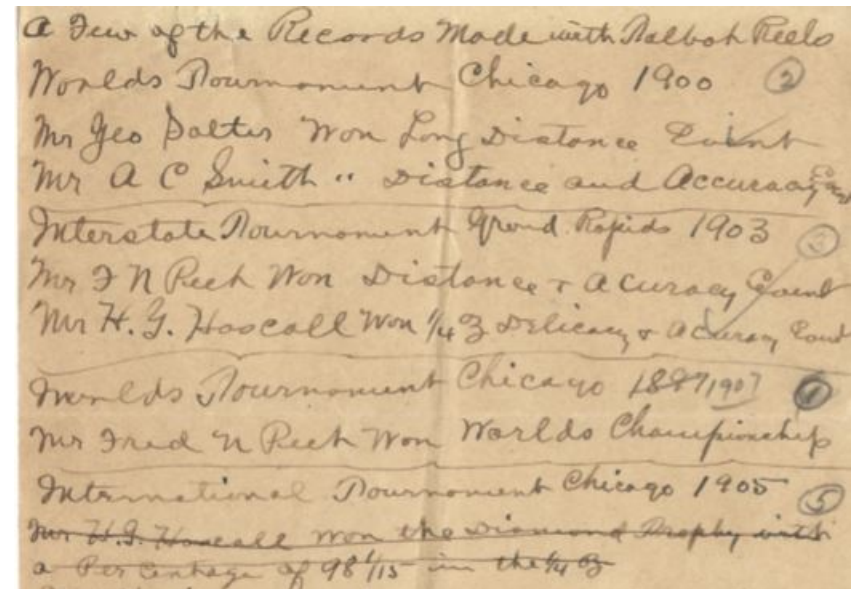 A Few of the Records Made with Talbot Reels
Worlds Tournament Chicago 1900 2
Mr Geo Salter Won Long Distance Event
Mr A C Smith " Distance and Accuracy
Interstate Tournament Grand Rapids 1903 3
Mr F N Peet Won Distance & Acuracy Event
Mr H. G. Hascall Won 1/4 oz Delicacy & Acuracy Event
Worlds Tournament Chicago 1897 1907 1
Mr Fred N Peet Won Worlds Championship
International Tournament Chicago 1905 5
Mr H.G. Hascall won the Diamond Trophy with
a Percentage of 98 1/15 in the 1/4 oz